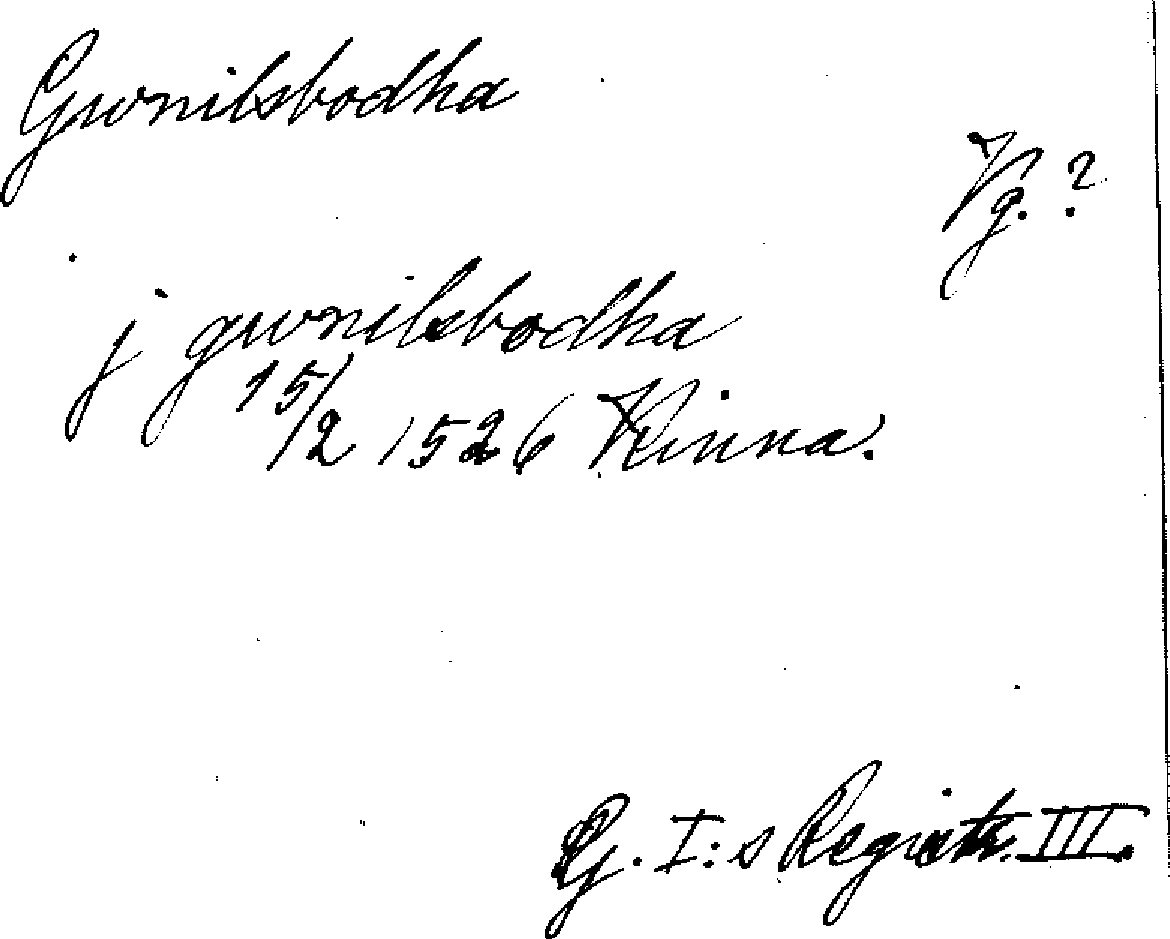 Gwnilsbodha
Vg. ?
j gwnilsbodha
15/2 1526 Kinna.
G. I:s Registr. III.